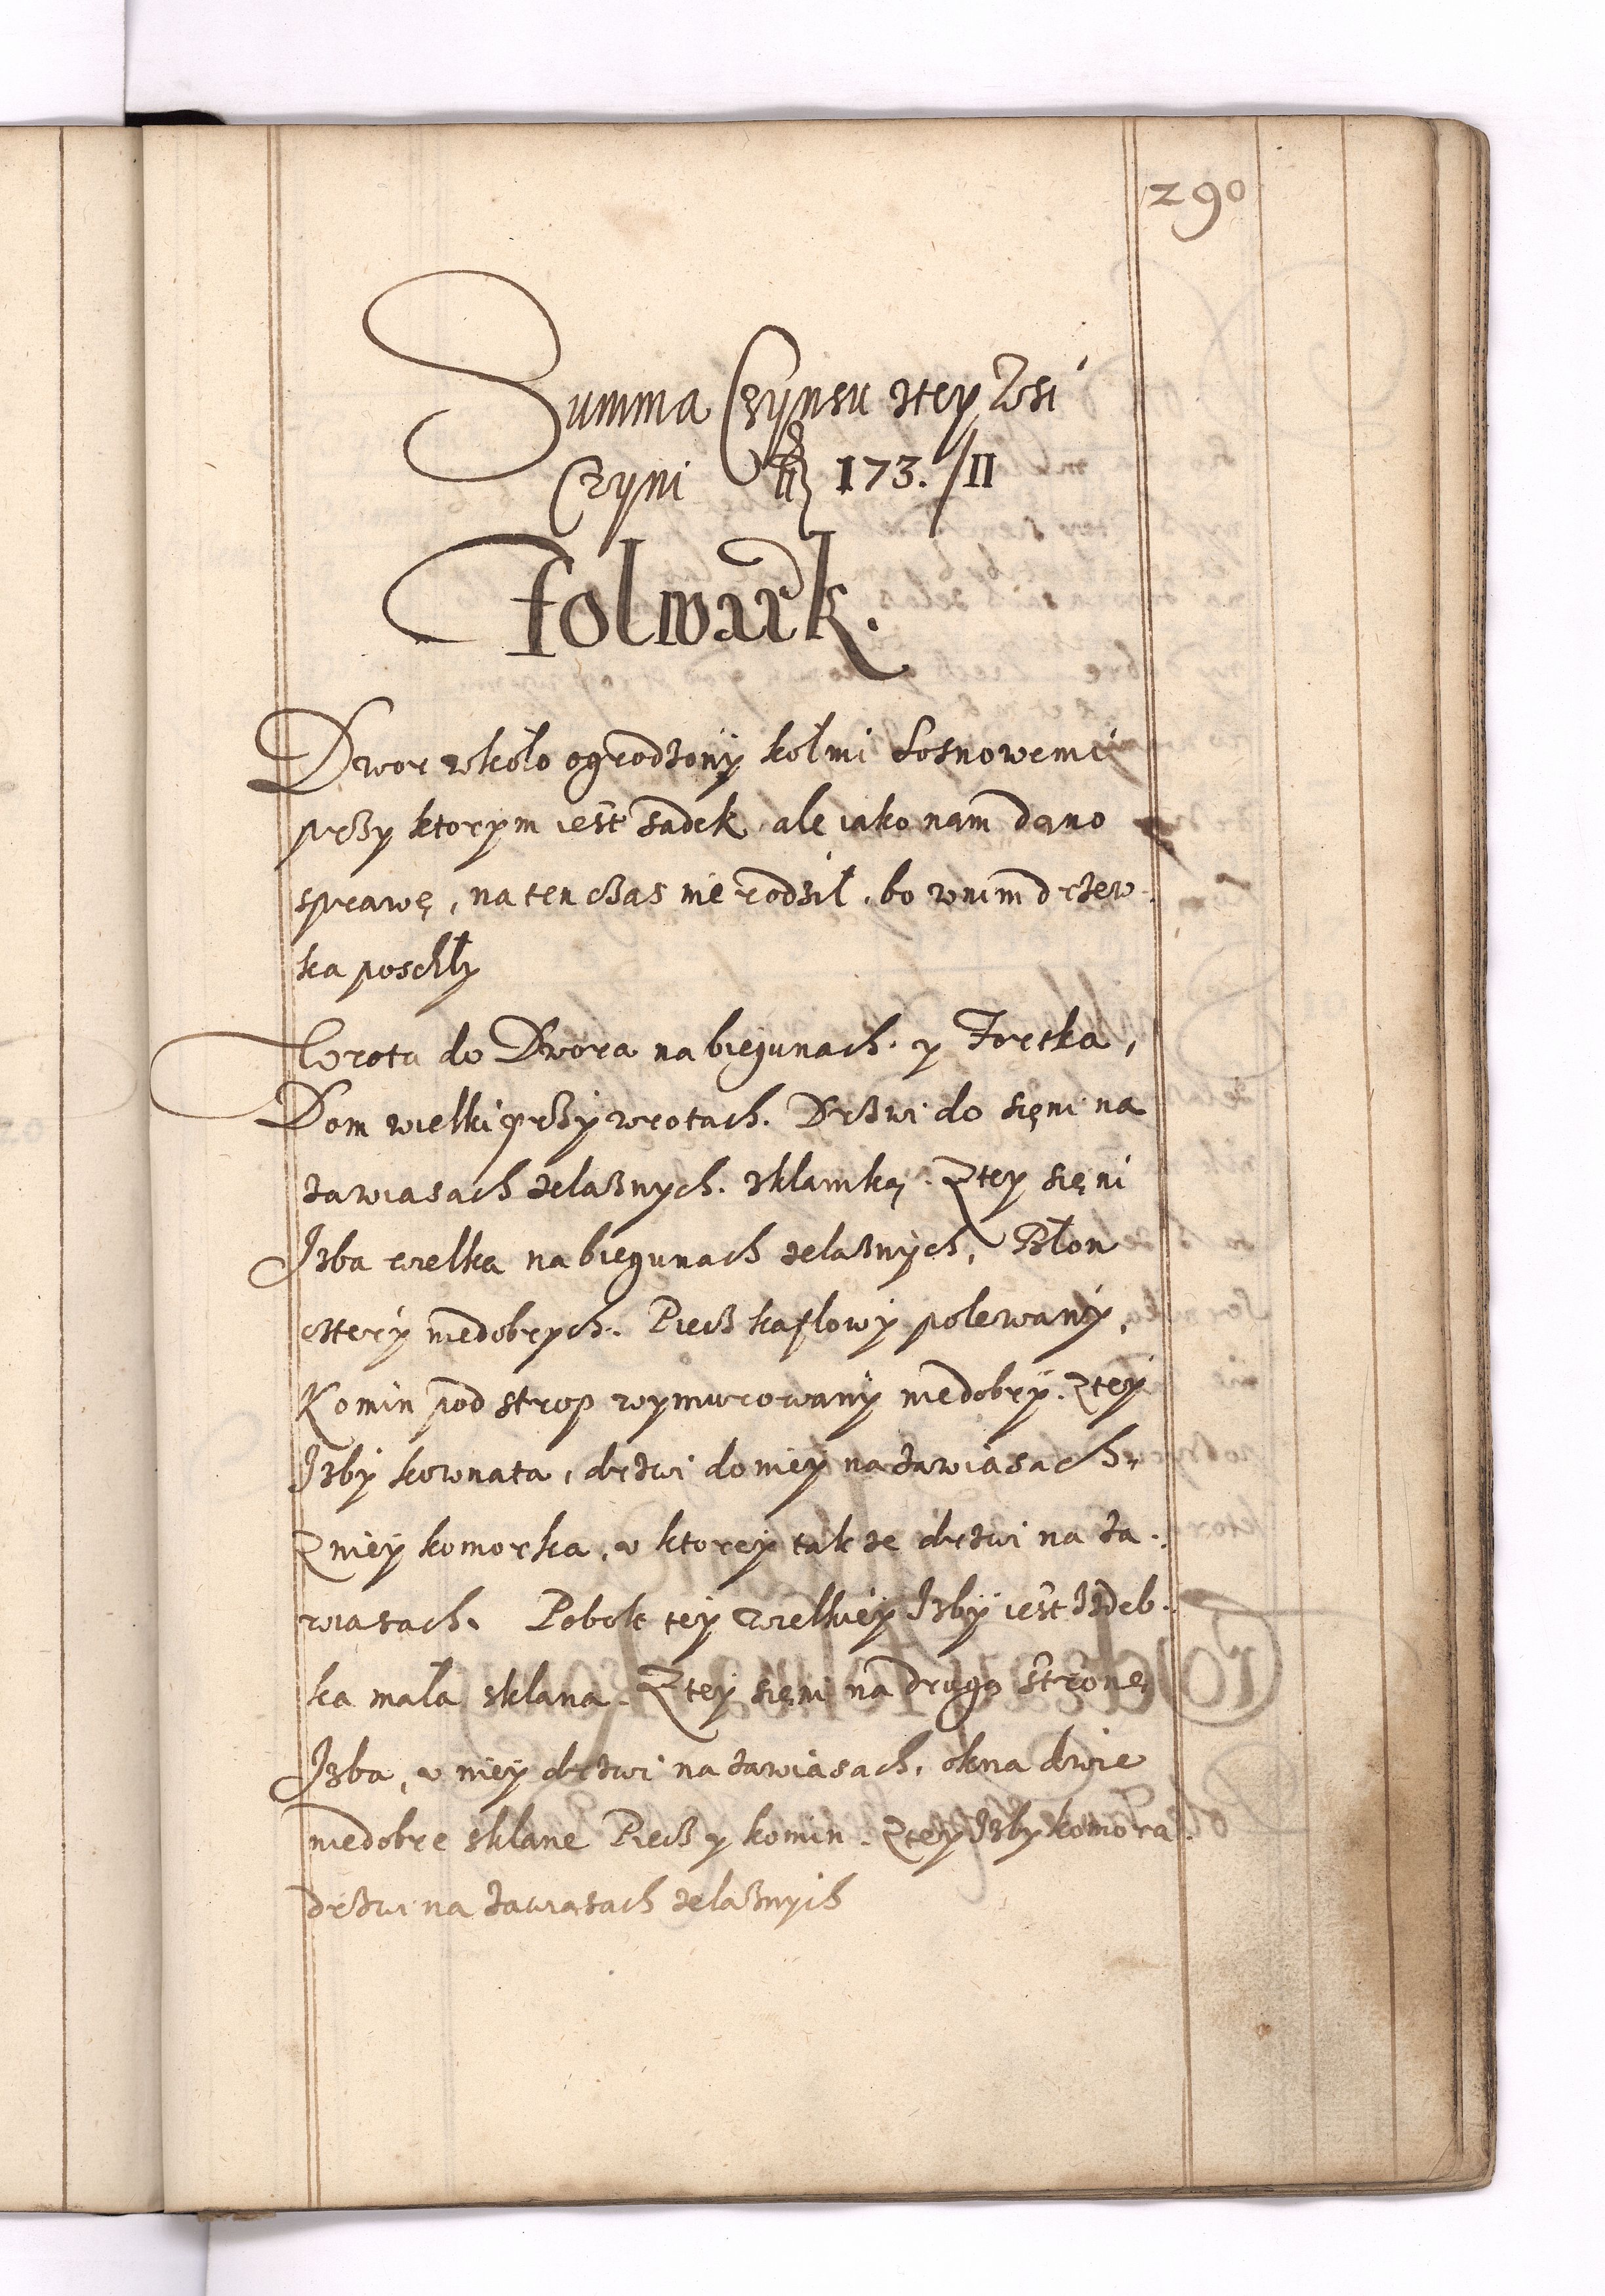 290
Summa Czynsu ztey Wsi
Czyni fl 173. /11
Folwark.
Dwor wkoło ogrodzony kołmi Sosnowemi
przy ktorym iest sadek, ale iako nam dano
sprawę, na ten czas nie rodził, bo wnim drzew-
ka poschły
Wrota do Dwora na biegunach. y Fortka,
Dom wielki przy wrotach. Drzwi do sięni na
zawiasach żelaznych. zklamką. Ztey sięni
Izba wielka na biegunach żelaznych, Błon
cztery niedobrych. Piecz kaflowy polewany,
Komin pod strop wymurowany niedobry. Ztey
Izby kownata, drzwi do niey na zawiasach,
Zniey komorka, v ktorey takze drzwi na za-
wiasach. Pobok tey wielkiey Izby iest Izdeb-
ka mała sklana. Ztey sięni na drugą stronę
Izba, v niey drzwi na zawiasach, okna dwie
niedobre sklane Piecz y komin. Ztey Izby komora
drzwi na zawiasach zelaznych